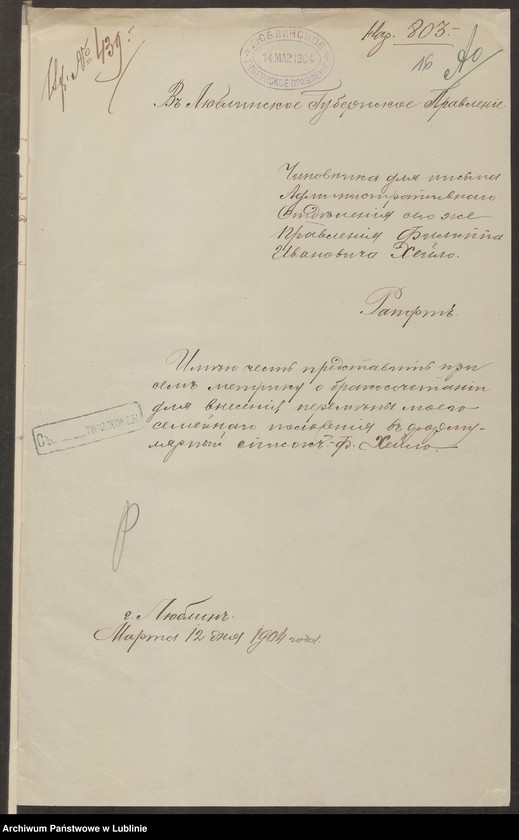 Нар. 803.
Пр. № 439
ЛЮБЛИНСКОЕ
14 МАР. 1904
ГУБЕРНСКОЕ ПРАВЛЕНІЕ
16
Въ Люблинское Губернское Правленіе.
Чиновника для письма
Административнаго
Отдѣленія сего же
Правленія Филиппа
Ивановича Хейло.
Рапортъ.
Имѣю честь представить при
семъ метрику о бракосочетаніи
для внесенія перемѣны моего
семейнаго положенія въ форму-
лярный списокъ. Ф. Хейло.
СЪ ПРИЛОЖЕН.
г. Люблинъ.
Марта 12 дня 1904 года
Archiwum Państwowe w Lublinie